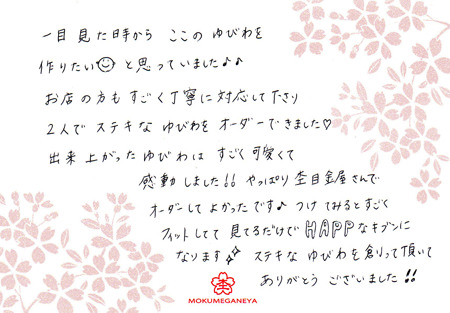 一目見た日時から ここの ゆびわを
作りたい と思っていました♪♪
お店の方も すごく丁寧に対応して下さり
2人で ステキな ゆびわを オーダーできました♡
出来上がった ゆびわは すごく可愛くて
感動しました!! やっぱり杢目金屋さんで
オーダーして よかったです♪ つけてみるとすごく
フィットしてて 見てるだけで HAPPなキブンに
なります ステキな ゆびわを創って頂いて
ありがとう ございました!!
杢
MOKUMEGANEYA